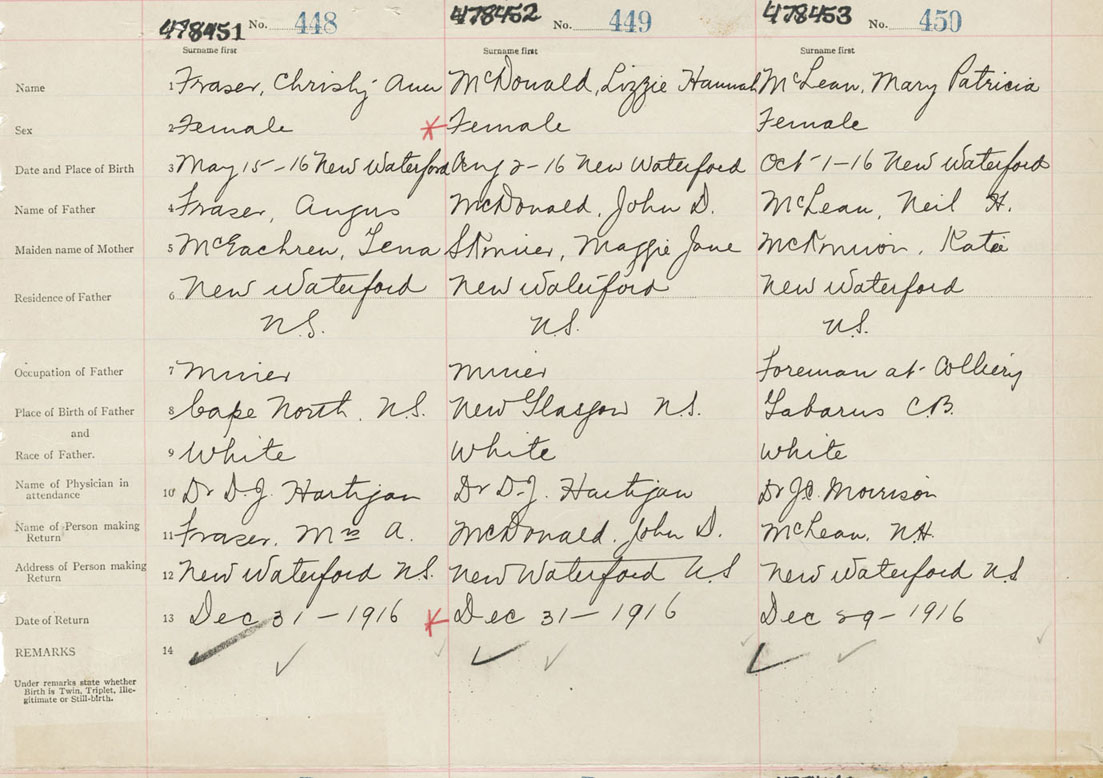 478451 No. 448 478452 No. 449 478453 No. 450
Surname first Surname first Surname first
Name 1 Fraser, Christy Ann McDonald, Lizzie Hannah McLean, Mary Patricia
Sex 2 Female Female Female
Date and Place of Birth 3 May 15-16 New Waterford Aug 2-16 New Waterford Oct-1-16 New Waterford
Name of Father 4 Fraser, Angus McDonald, John D. McLean, Neil H.
Maiden name of Mother 5 McEachren, Tena Maggie Jane McKinnon, Katie
Residence of Father 6 New Waterford New Waterford New Waterford
N.S. N.S. N.S.
Occupation of Father 7 Miner Miner Foreman at Colliery
Place of Birth of Father 8 Cape North, N.S. New Glasgow N.S. Gabarus C.B.
and
Race of Father. 9 White White White
Name of Physician in
attendance 10 Dr D.J. Hartigan Dr D.J. Hartigan Dr J.C. Morrison
Name of Person making
Return 11 Fraser, Mrs A. McDonald, John D. McLean, N.H.
Address of Person making
Return 12 New Waterford N.S. New Waterford N.S New Waterford N.S
Date of Return 13 Dec 31-1916 Dec 31-1916 Dec 29-1916
REMARKS 14
Under remarks state whether
Birth is Twin, Triplet, Ille-
gitimate or Still-birth.